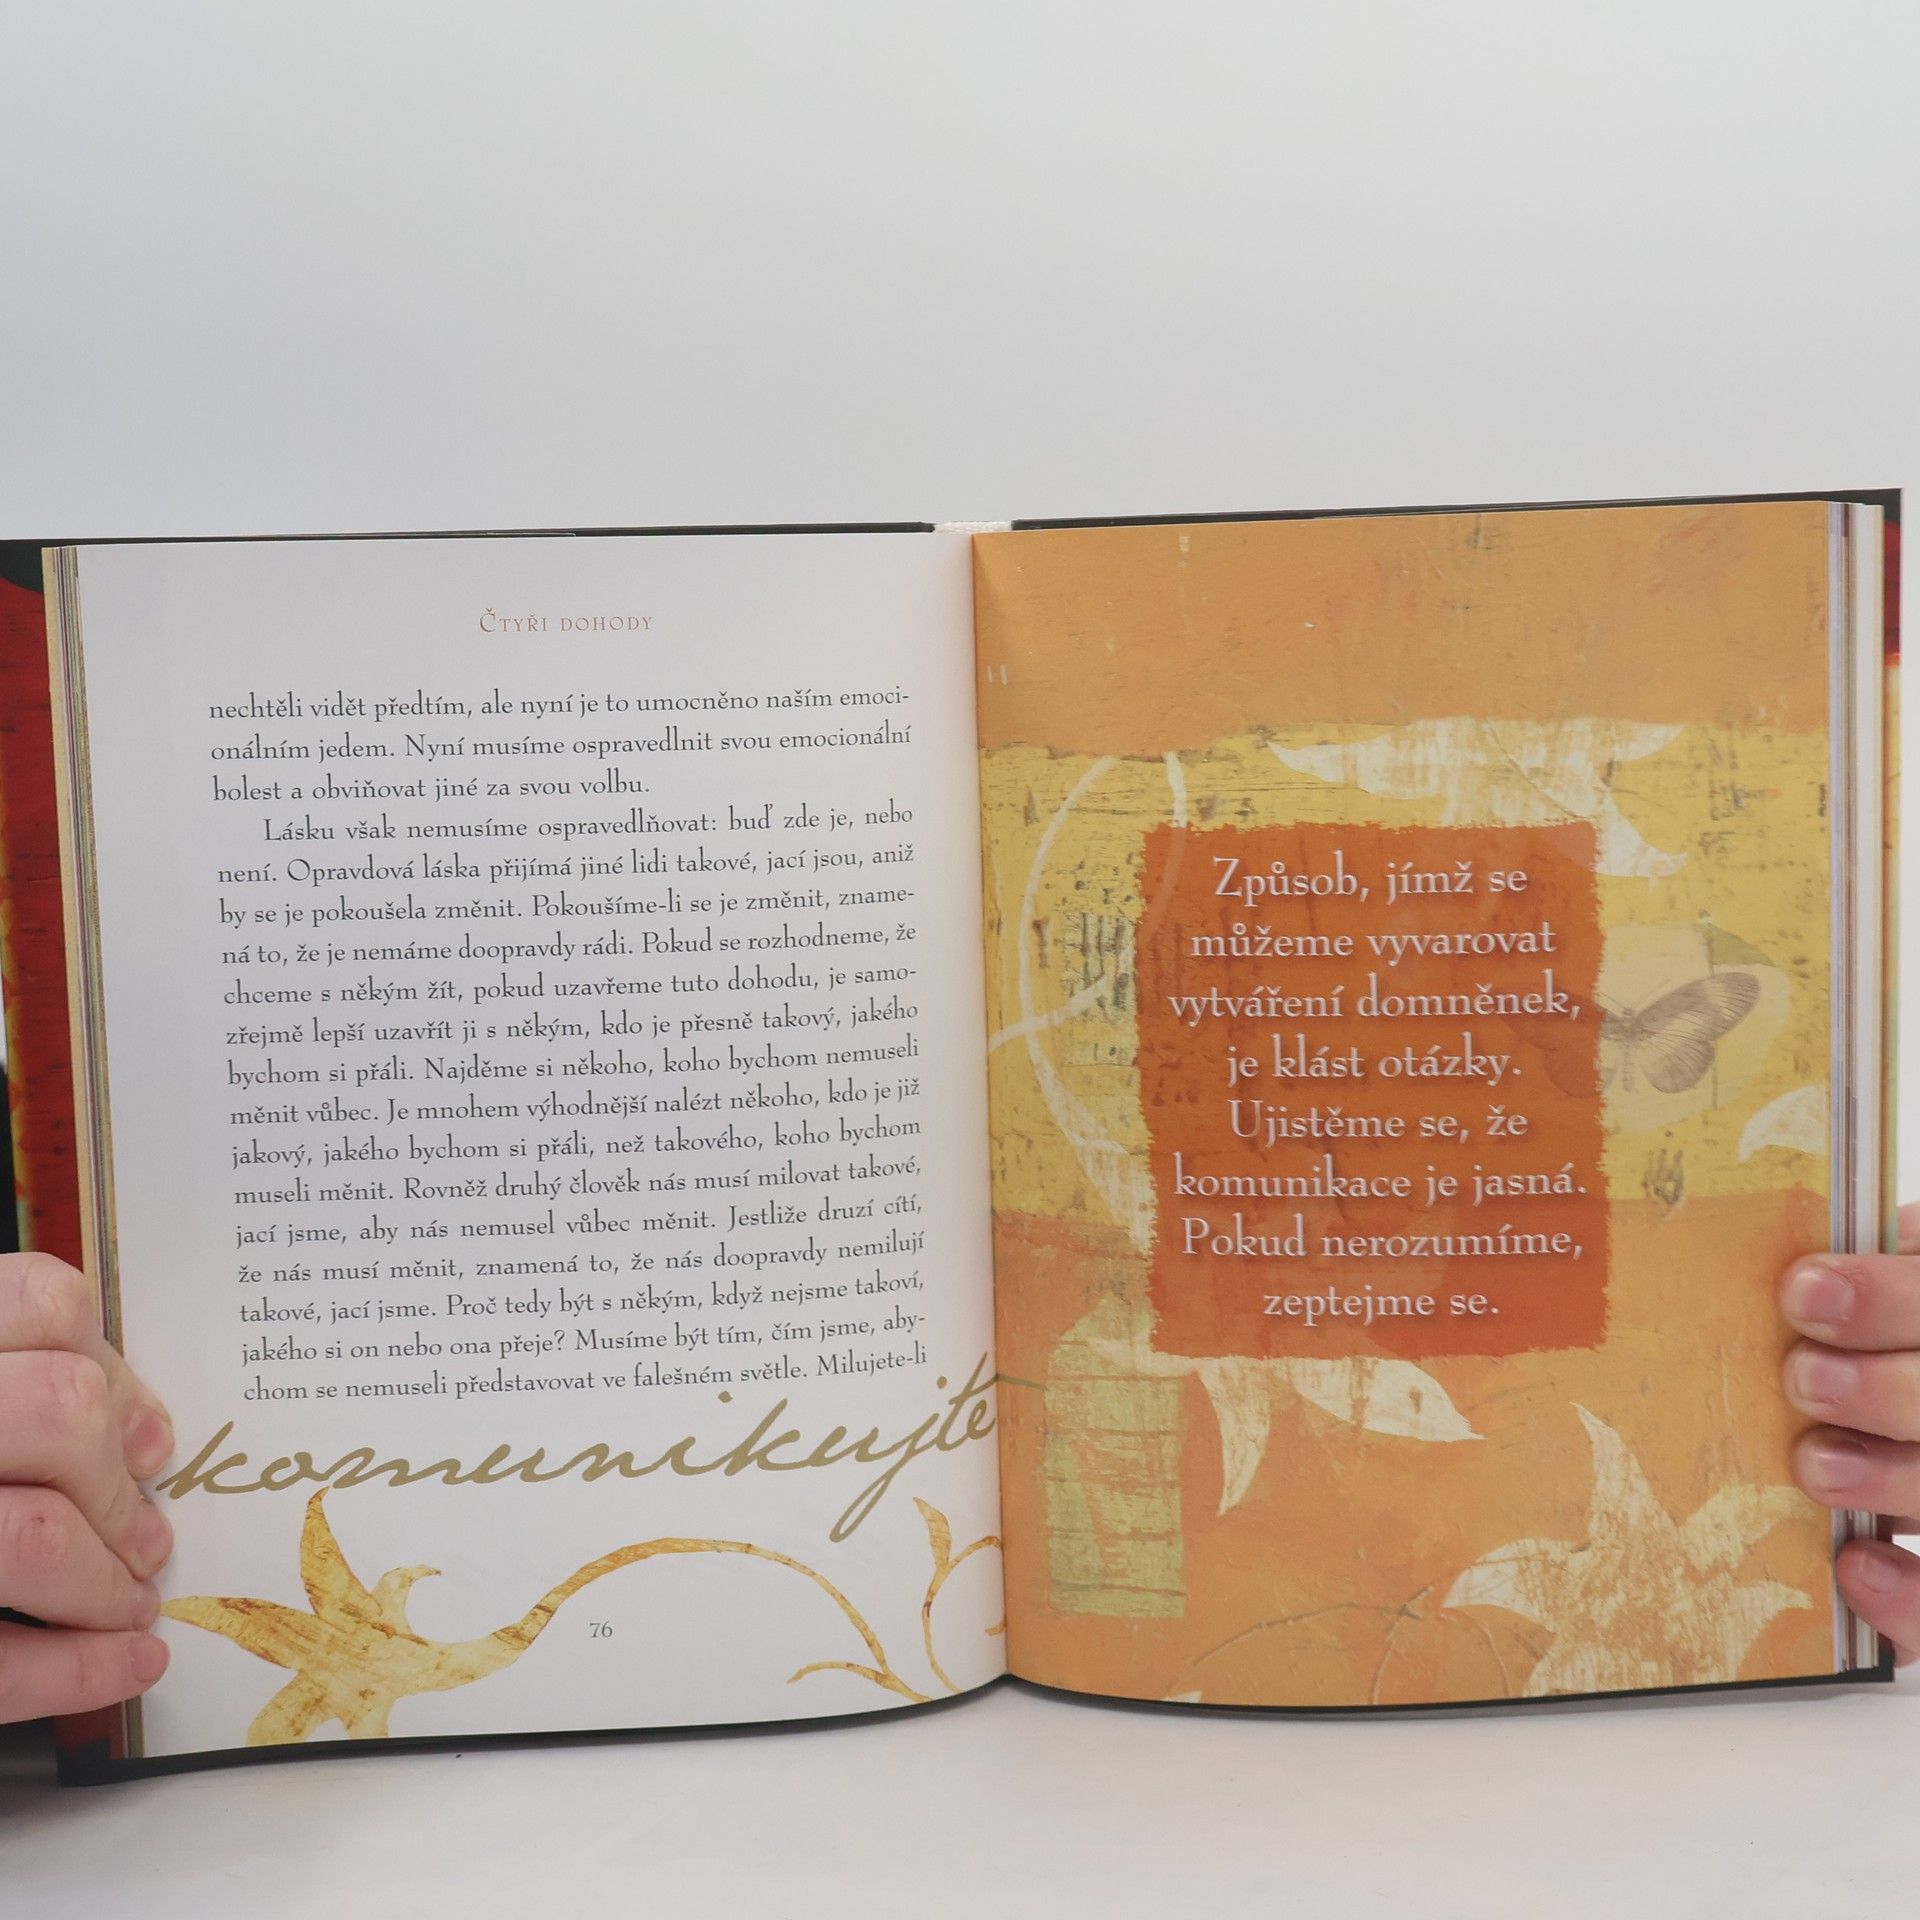 Čtyři dohody
nechtěli vidět předtím, ale nyní je to umocněno naším emoci-
onálním jedem. Nyní musíme ospravedlnit svou emocionální
bolest a obviňovat jiné za svou volbu.
Lásku však nemusíme ospravedlňovat: buď zde je, nebo
není. Opravdová láska přijímá jiné lidi takové, jací jsou, aniž
by se je pokoušela změnit. Pokoušíme-li se je změnit, zname-
ná to, že je nemáme doopravdy rádi. Pokud se rozhodneme, že
chceme s někým žít, pokud uzavřeme tuto dohodu, je samo-
zřejmě lepší uzavřít ji s někým, kdo je přesně takový, jakého
bychom si přáli. Najděme si někoho, koho bychom nemuseli
měnit vůbec. Je mnohem výhodnější nalézt někoho, kdo je již
jakový, jakého bychom si přáli, než takového, koho bychom
museli měnit. Rovněž druhý člověk nás musí milovat takové,
jací jsme, aby nás nemusel vůbec měnit. Jestliže druzí cítí,
že nás musí měnit, znamená to, že nás doopravdy nemilují
takové, jací jsme. Proč tedy být s někým, když nejsme takoví,
jakého si on nebo ona přeje? Musíme být tím, čím jsme, aby-
chom se nemuseli představovat ve falešném světle. Milujete-li
komunikujte
76
Způsob, jímž se
můžeme vyvarovat
vytváření domněnek,
je klást otázky.
Ujistěme se, že
komunikace je jasná.
Pokud nerozumíme,
zeptejme se.